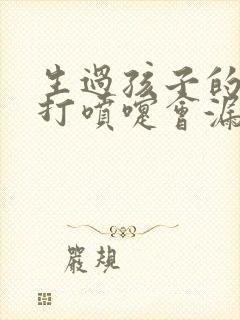 生過孩子的
打噴嚏會漏
嚴規